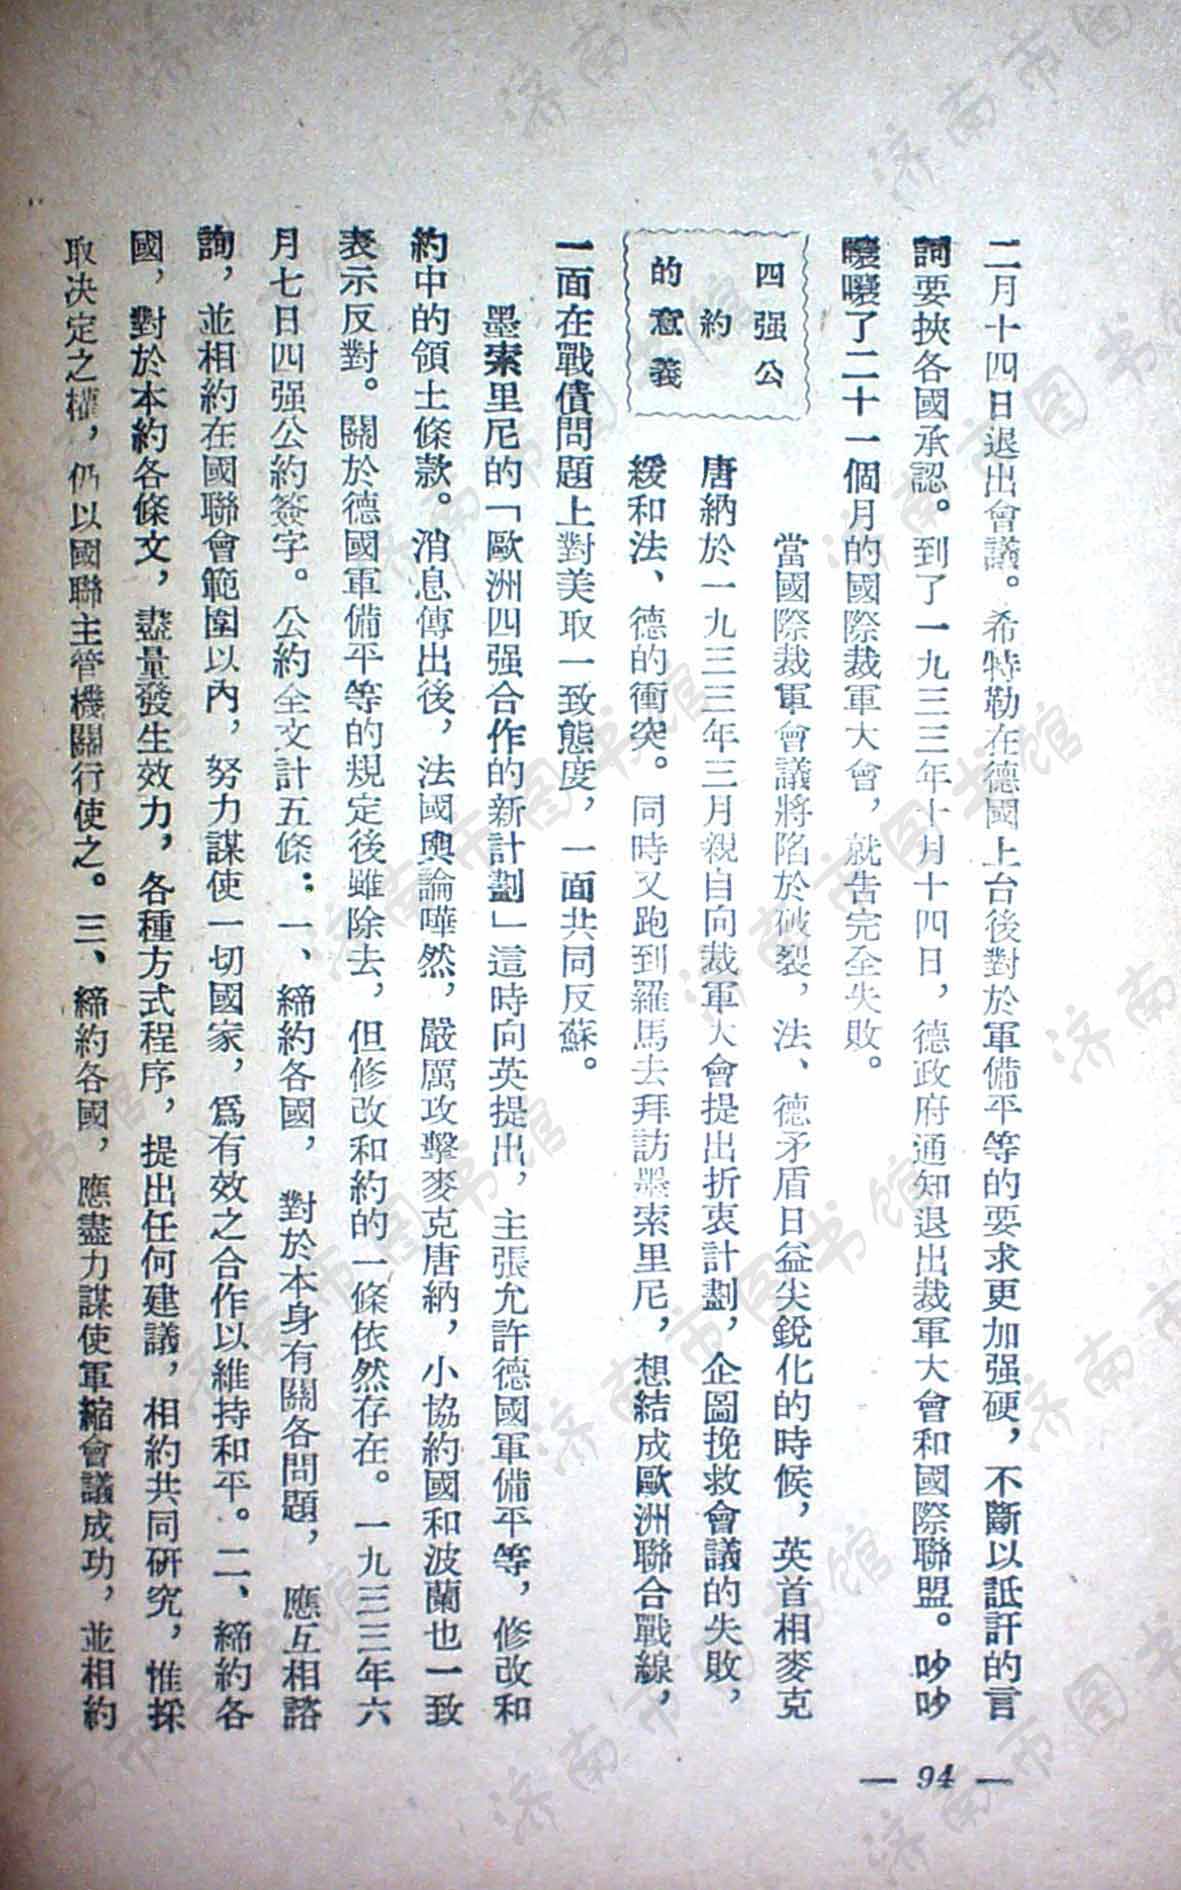 二月十四日退出會議。希特勒在德國上台後對於軍備平等的要求更加强硬，不斷以詆訐的言
詞要挾各國承認。到了一九三三年十月十四日，德政府通知退出裁軍大會和國際聯盟。吵吵
嚷嚷了二十一個月的國際裁軍大會，就告完全失敗。
四强公
約
的意義
當國際裁軍會議將陷於破裂，法、德矛盾日益尖銳化的時候，英首相麥克
唐納於一九三三年三月親自向裁軍大會提出折衷計劃，企圖挽救會議的失敗，
緩和法、德的衝突。同時又跑到羅馬去拜訪墨索里尼，想結成歐洲聯合戰線，
一面在戰債問題上對美取一致態度，一面共同反蘇。
墨索里尼的「歐洲四强合作的新計劃」這時向英提出，主張允許德國軍備平等，修改和
約中的領土條款。消息傳出後，法國輿論嘩然，嚴厲攻擊麥克唐納，小協約國和波蘭也一致
表示反對。關於德國軍備平等的規定後雖除去，但修改和約的一條依然存在。一九三三年六
月七日四强公約簽字。公約全文計五條：一、締約各國，對於本身有關各問題，應互相諮
詢，並相約在國聯會範圍以內，努力謀使一切國家，爲有效之合作以維持和平。二、締約各
國，對於本約各條文，盡量發生效力，各種方式程序，提出任何建議，相約共同研究，惟採
取決定之權，仍以國聯主管機關行使之。三、締約各國，應盡力謀使軍縮會議成功，並相約
— 94 —
济南市图书馆